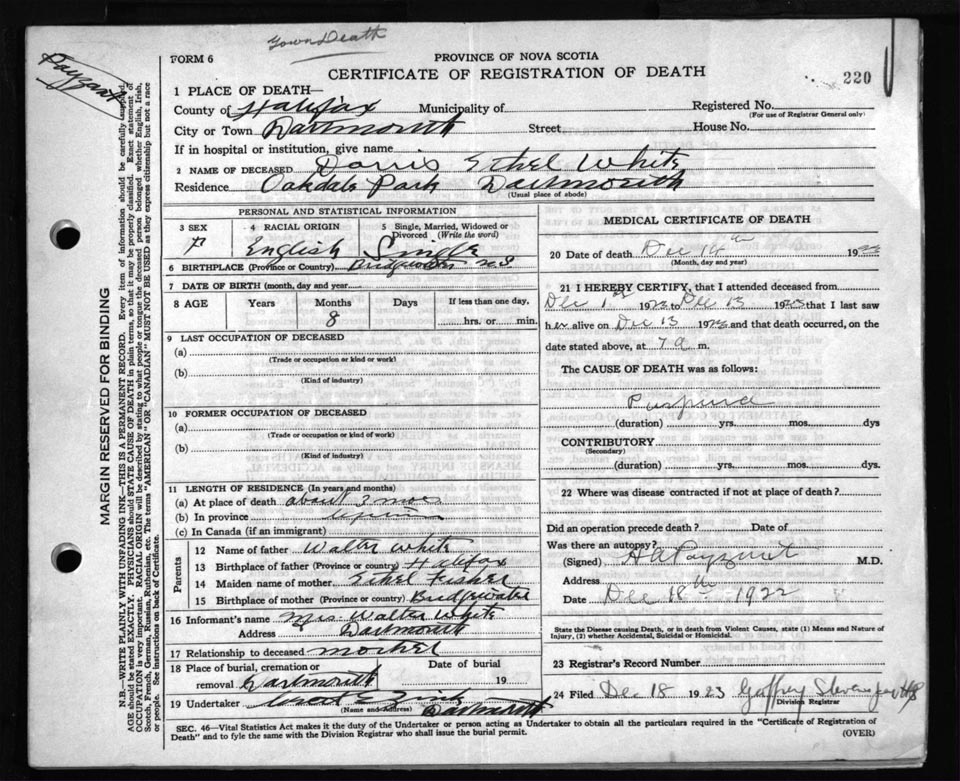 Town Death
Payzant
FORM 6
PROVINCE OF NOVA SCOTIA
CERTIFICATE OF REGISTRATION OF DEATH
220
1 PLACE OF DEATH—
County of Halifax Municipality of Registered No.
(For use of Registrar General only)
City or Town Dartmouth Street House No.
If in hospital or institution, give name
2 NAME OF DECEASED Dorris Ethel White
Residence Oakdale Park Dartmouth
(Usual place of abode)
PERSONAL AND STATISTICAL INFORMATION
3 SEX 4 RACIAL ORIGIN 5 Single, Married, Widowed or Divorced (Write the word)
F English Single
6 BIRTHPLACE (Province or Country) Bridgewater N.S.
7 DATE OF BIRTH (month, day and year)
8 AGE Years Months Days If less than one day,
8 hrs. or min.
9 LAST OCCUPATION OF DECEASED
(a)
(Trade or occupation or kind or work)
(b)
(Kind of industry)
10 FORMER OCCUPATION OF DECEASED
(a)
(Trade or occupation or kind of work)
(b)
(Kind of industry)
11 LENGTH OF RESIDENCE (In years and months)
(a) At place of death about 2 mos
(b) In province
(c) In Canada (if an immigrant)
Parents
12 Name of father Walter White
13 Birthplace of father (Province or country) Halifax
14 Maiden name of mother Ethel Fisher
15 Birthplace of mother (Province or country) Bridgewater
16 Informant's name Mrs Walter White
Address Dartmouth
17 Relationship to deceased mother
18 Place of burial, cremation or removal Dartmouth Date of burial 19
19 Undertaker Zink Dartmouth
(Name and Address)
MEDICAL CERTIFICATE OF DEATH
20 Date of death Dec 14th 1923
(Month, day and year)
21 I HEREBY CERTIFY, that I attended deceased from
Dec 1st 1923 to Dec 13 1923 that I last saw
her alive on Dec 13 1923 and that death occurred, on
date stated above, at 7 a m.
The CAUSE OF DEATH was as follows:
Purpura
(duration) yrs. mos. dys
CONTRIBUTORY
(Secondary)
(duration) yrs. mos. dys.
22 Where was disease contracted if not at place of death?
Did an operation precede death? Date of
Was there an autopsy?
(Signed) H A Payzant M.D.
Address
Date Dec 18th 1922
State the Disease causing Death, or in death from Violent Causes, state (1) Means and Nature of
Injury, (2) whether Accidental, Suicidal or Homicidal.
23 Registrar's Record Number
24 Filed Dec 18 1923 Gaffrey
Division Registrar
SEC. 46—Vital Statistics Act makes it the duty of the Undertaker or person acting as Undertaker to obtain all the particulars required in the "Certificate of Registration of
Death" and to fyle same with the Division Registrar who shall issue the burial permit. (OVER)
MARGIN RESERVED FOR BINDING
N.B.—WRITE PLAINLY WITH UNFADING INK—THIS IS A PERMANENT RECORD. Every item of information should be carefully supplied.
AGE should be stated EXACTLY. PHYSICIANS should STATE CAUSE OF DEATH in plain terms, so that it may be properly classified. Exact statement of
OCCUPATION is very important. RACIAL ORIGIN will be described by stating to what people or tongue the deceased person belonged whether English, Irish,
Scotch, French, German, Russian, Ruthenian, etc. The terms "AMERICAN" OR "CANADIAN" MUST NOT BE USED as they express citizenship but not a race
or people. See instructions on back of Certificate.